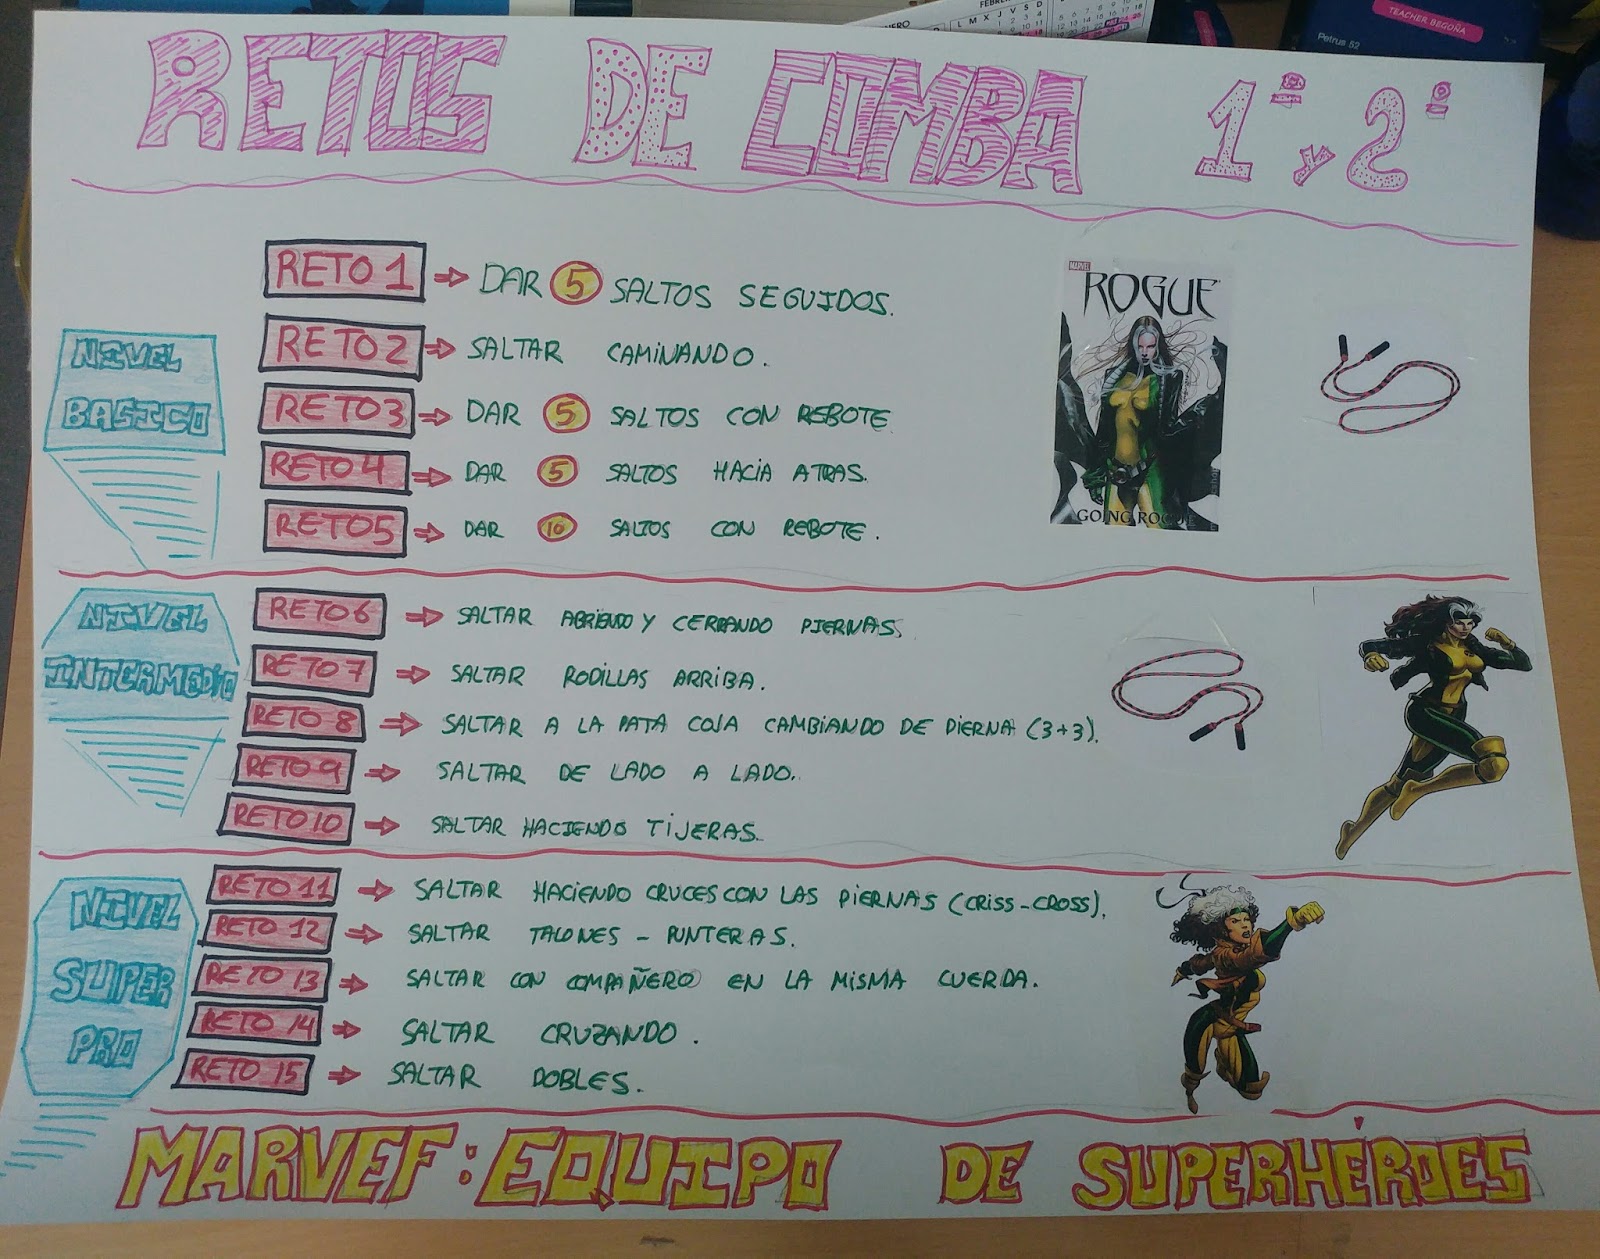 FEBRE
L M X J V S D
TEACHER BEGOÑA
Petrus 52
RETOS DE COMBA 1º y 2º
NIVEL
BASICO
RETO 1 ⇒ DAR 5 SALTOS SEGUIDOS.
RETO 2 ⇒ SALTAR CAMINANDO.
RETO 3 ⇒ DAR 5 SALTOS CON REBOTE
RETO 4 ⇒ DAR 5 SALTOS HACIA ATRAS.
RETO 5 ⇒ DAR 10 SALTOS CON REBOTE.
MARVEL
ROGUE
GOING ROGUE
NIVEL
INTERMEDIO
RETO 6 ⇒ SALTAR ABRIENDO Y CERRANDO PIERNAS.
RETO 7 ⇒ SALTAR RODILLAS ARRIBA.
RETO 8 ⇒ SALTAR A LA PATA COJA CAMBIANDO DE PIERNA (3+3).
RETO 9 ⇒ SALTAR DE LADO A LADO.
RETO 10 ⇒ SALTAR HACIENDO TIJERAS.
NIVEL
SUPER
PRO
RETO 11 ⇒ SALTAR HACIENDO CRUCES CON LAS PIERNAS (CRISS-CROSS).
RETO 12 ⇒ SALTAR TALONES - PUNTERAS.
RETO 13 ⇒ SALTAR CON COMPAÑERO EN LA MISMA CUERDA.
RETO 14 ⇒ SALTAR CRUZANDO.
RETO 15 ⇒ SALTAR DOBLES.
MARVEF: EQUIPO DE SUPERHÉROES